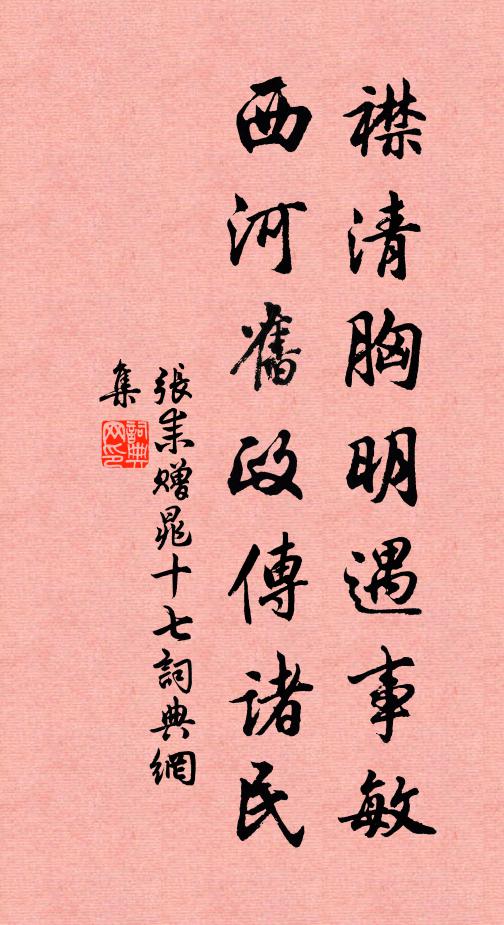 襟清胸明遇事敏
西河舊政傳諸民
張耒贈晁十七詞典網
集
詞典
网印